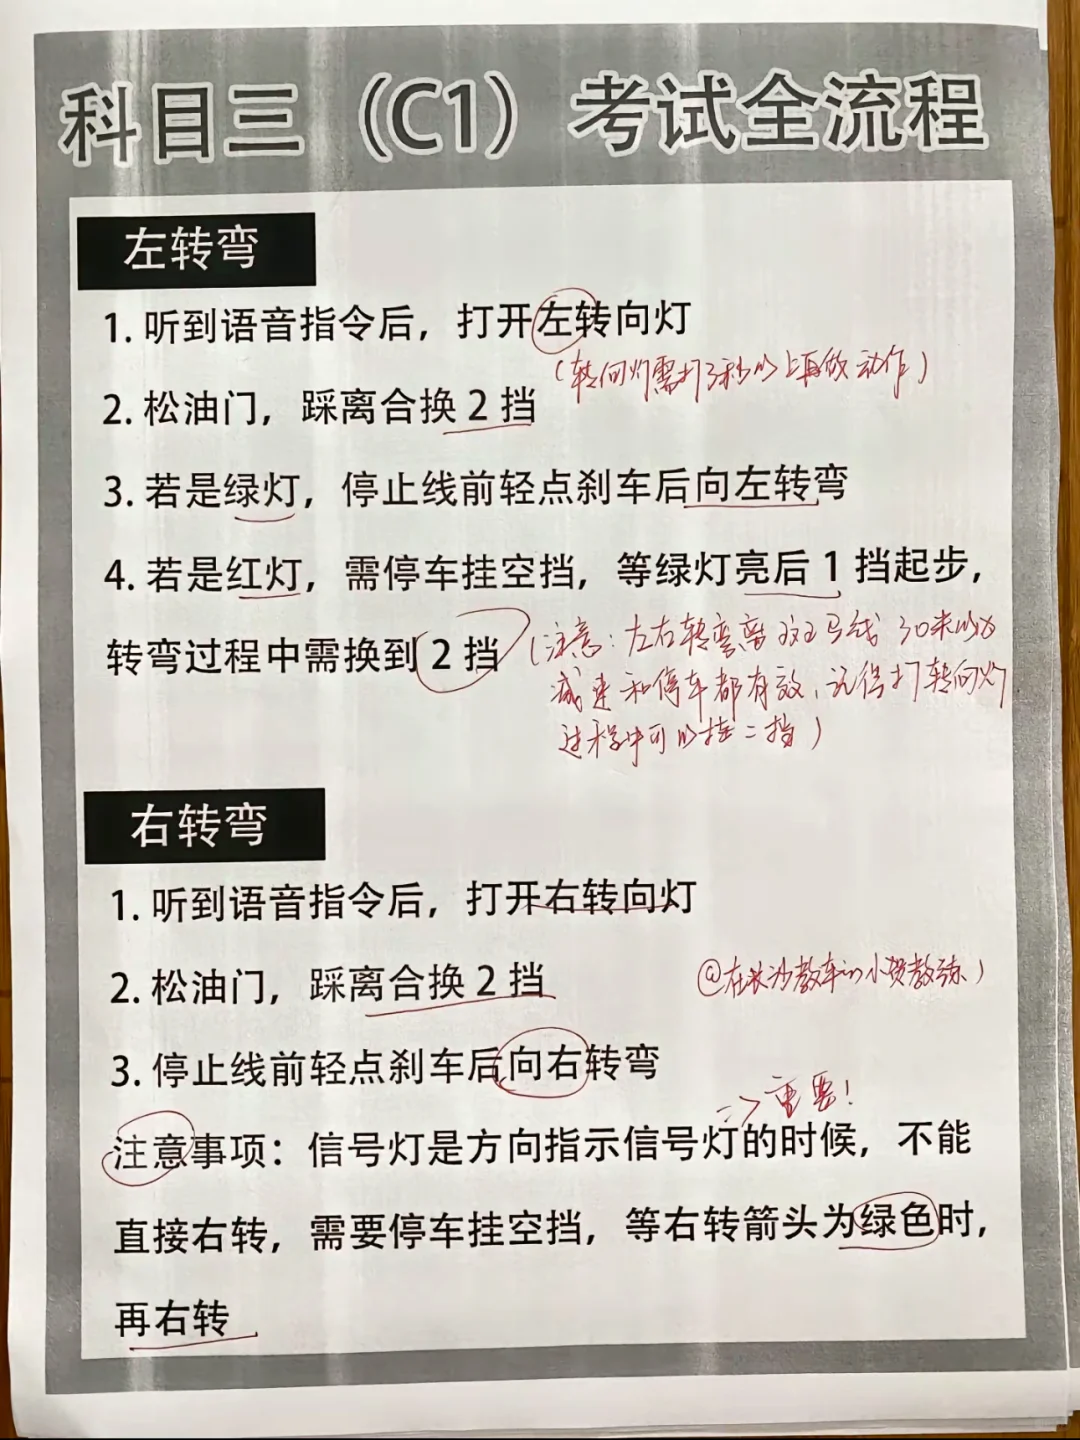 科目三（C1）考试全流程
左转弯
1. 听到语音指令后，打开左转向灯
（转向灯需打3秒以上再做动作）
2. 松油门，踩离合换 2 挡
3. 若是绿灯，停止线前轻点刹车后向左转弯
4. 若是红灯，需停车挂空挡，等绿灯亮后 1 挡起步，
转弯过程中需换到 2 挡
（注意：左右转弯离斑马线30米以内
减速和停车都有效，记得打转向灯
过程中可以挂二挡）
右转弯
1. 听到语音指令后，打开右转向灯
2. 松油门，踩离合换 2 挡
@在长沙教车的小贺教练）
3. 停止线前轻点刹车后向右转弯
=> 重要！
注意事项：信号灯是方向指示信号灯的时候，不能
直接右转，需要停车挂空挡，等右转箭头为绿色时，
再右转